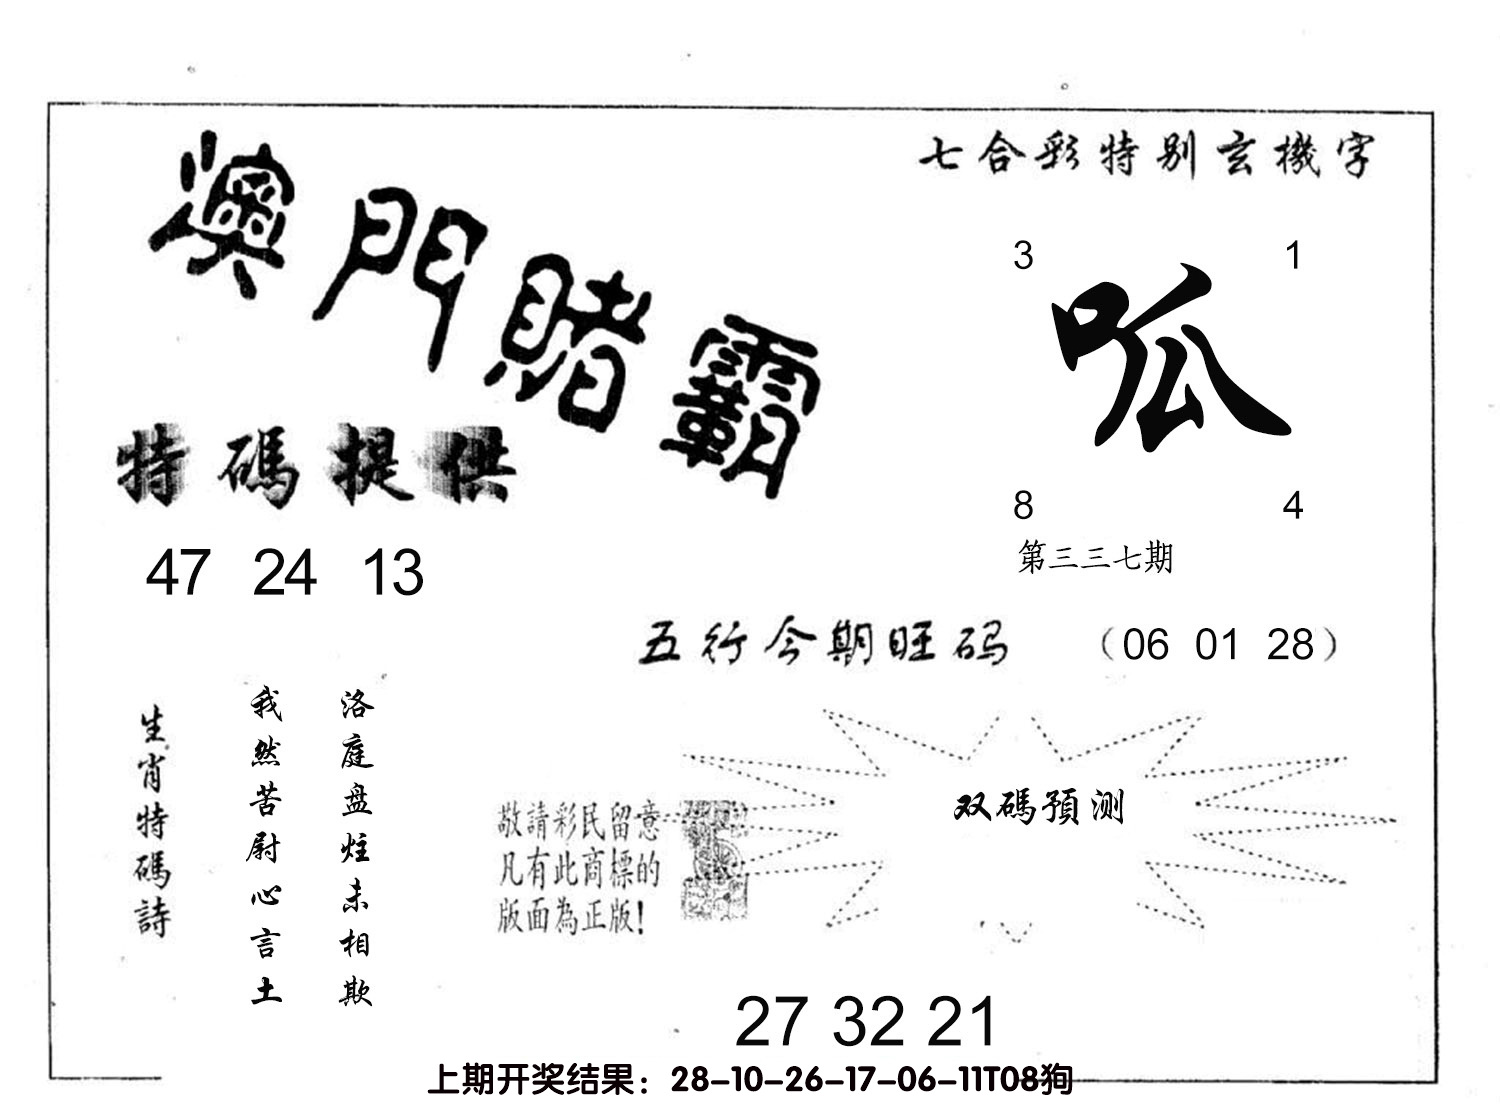 澳門賭霸
七合彩特别玄機字
3 1
呱
8 4
第三三七期
特碼提供
47 24 13
五行今期旺码 （06 01 28）
生肖特碼詩
洛庭盘炷未相欺
我然苦尉心言土
敬請彩民留意
凡有此商標的
版面為正版!
双碼預测
27 32 21
上期开奖结果：28-10-26-17-06-11T08狗